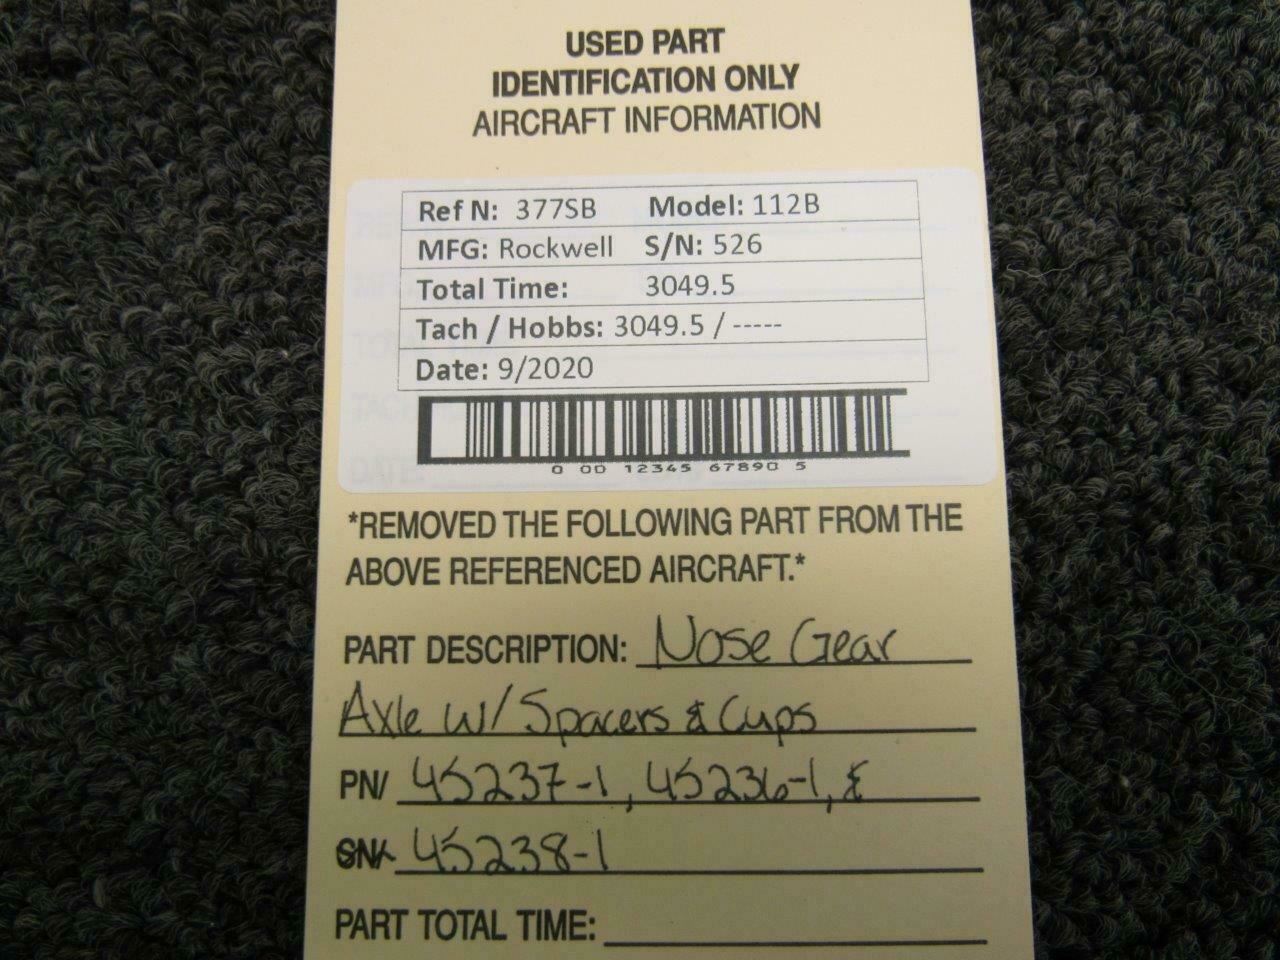 USED PART
IDENTIFICATION ONLY
AIRCRAFT INFORMATION
Ref N: 377SB Model: 112B
MFG: Rockwell S/N: 526
Total Time: 3049.5
Tach / Hobbs: 3049.5 / -----
Date: 9/2020
0 00 12345 67890 5
*REMOVED THE FOLLOWING PART FROM THE
ABOVE REFERENCED AIRCRAFT.*
PART DESCRIPTION: Nose Gear
Axle w/ Spacers & Cups
PN/ 45237-1, 45236-1, &
SN/ 45238-1
PART TOTAL TIME: